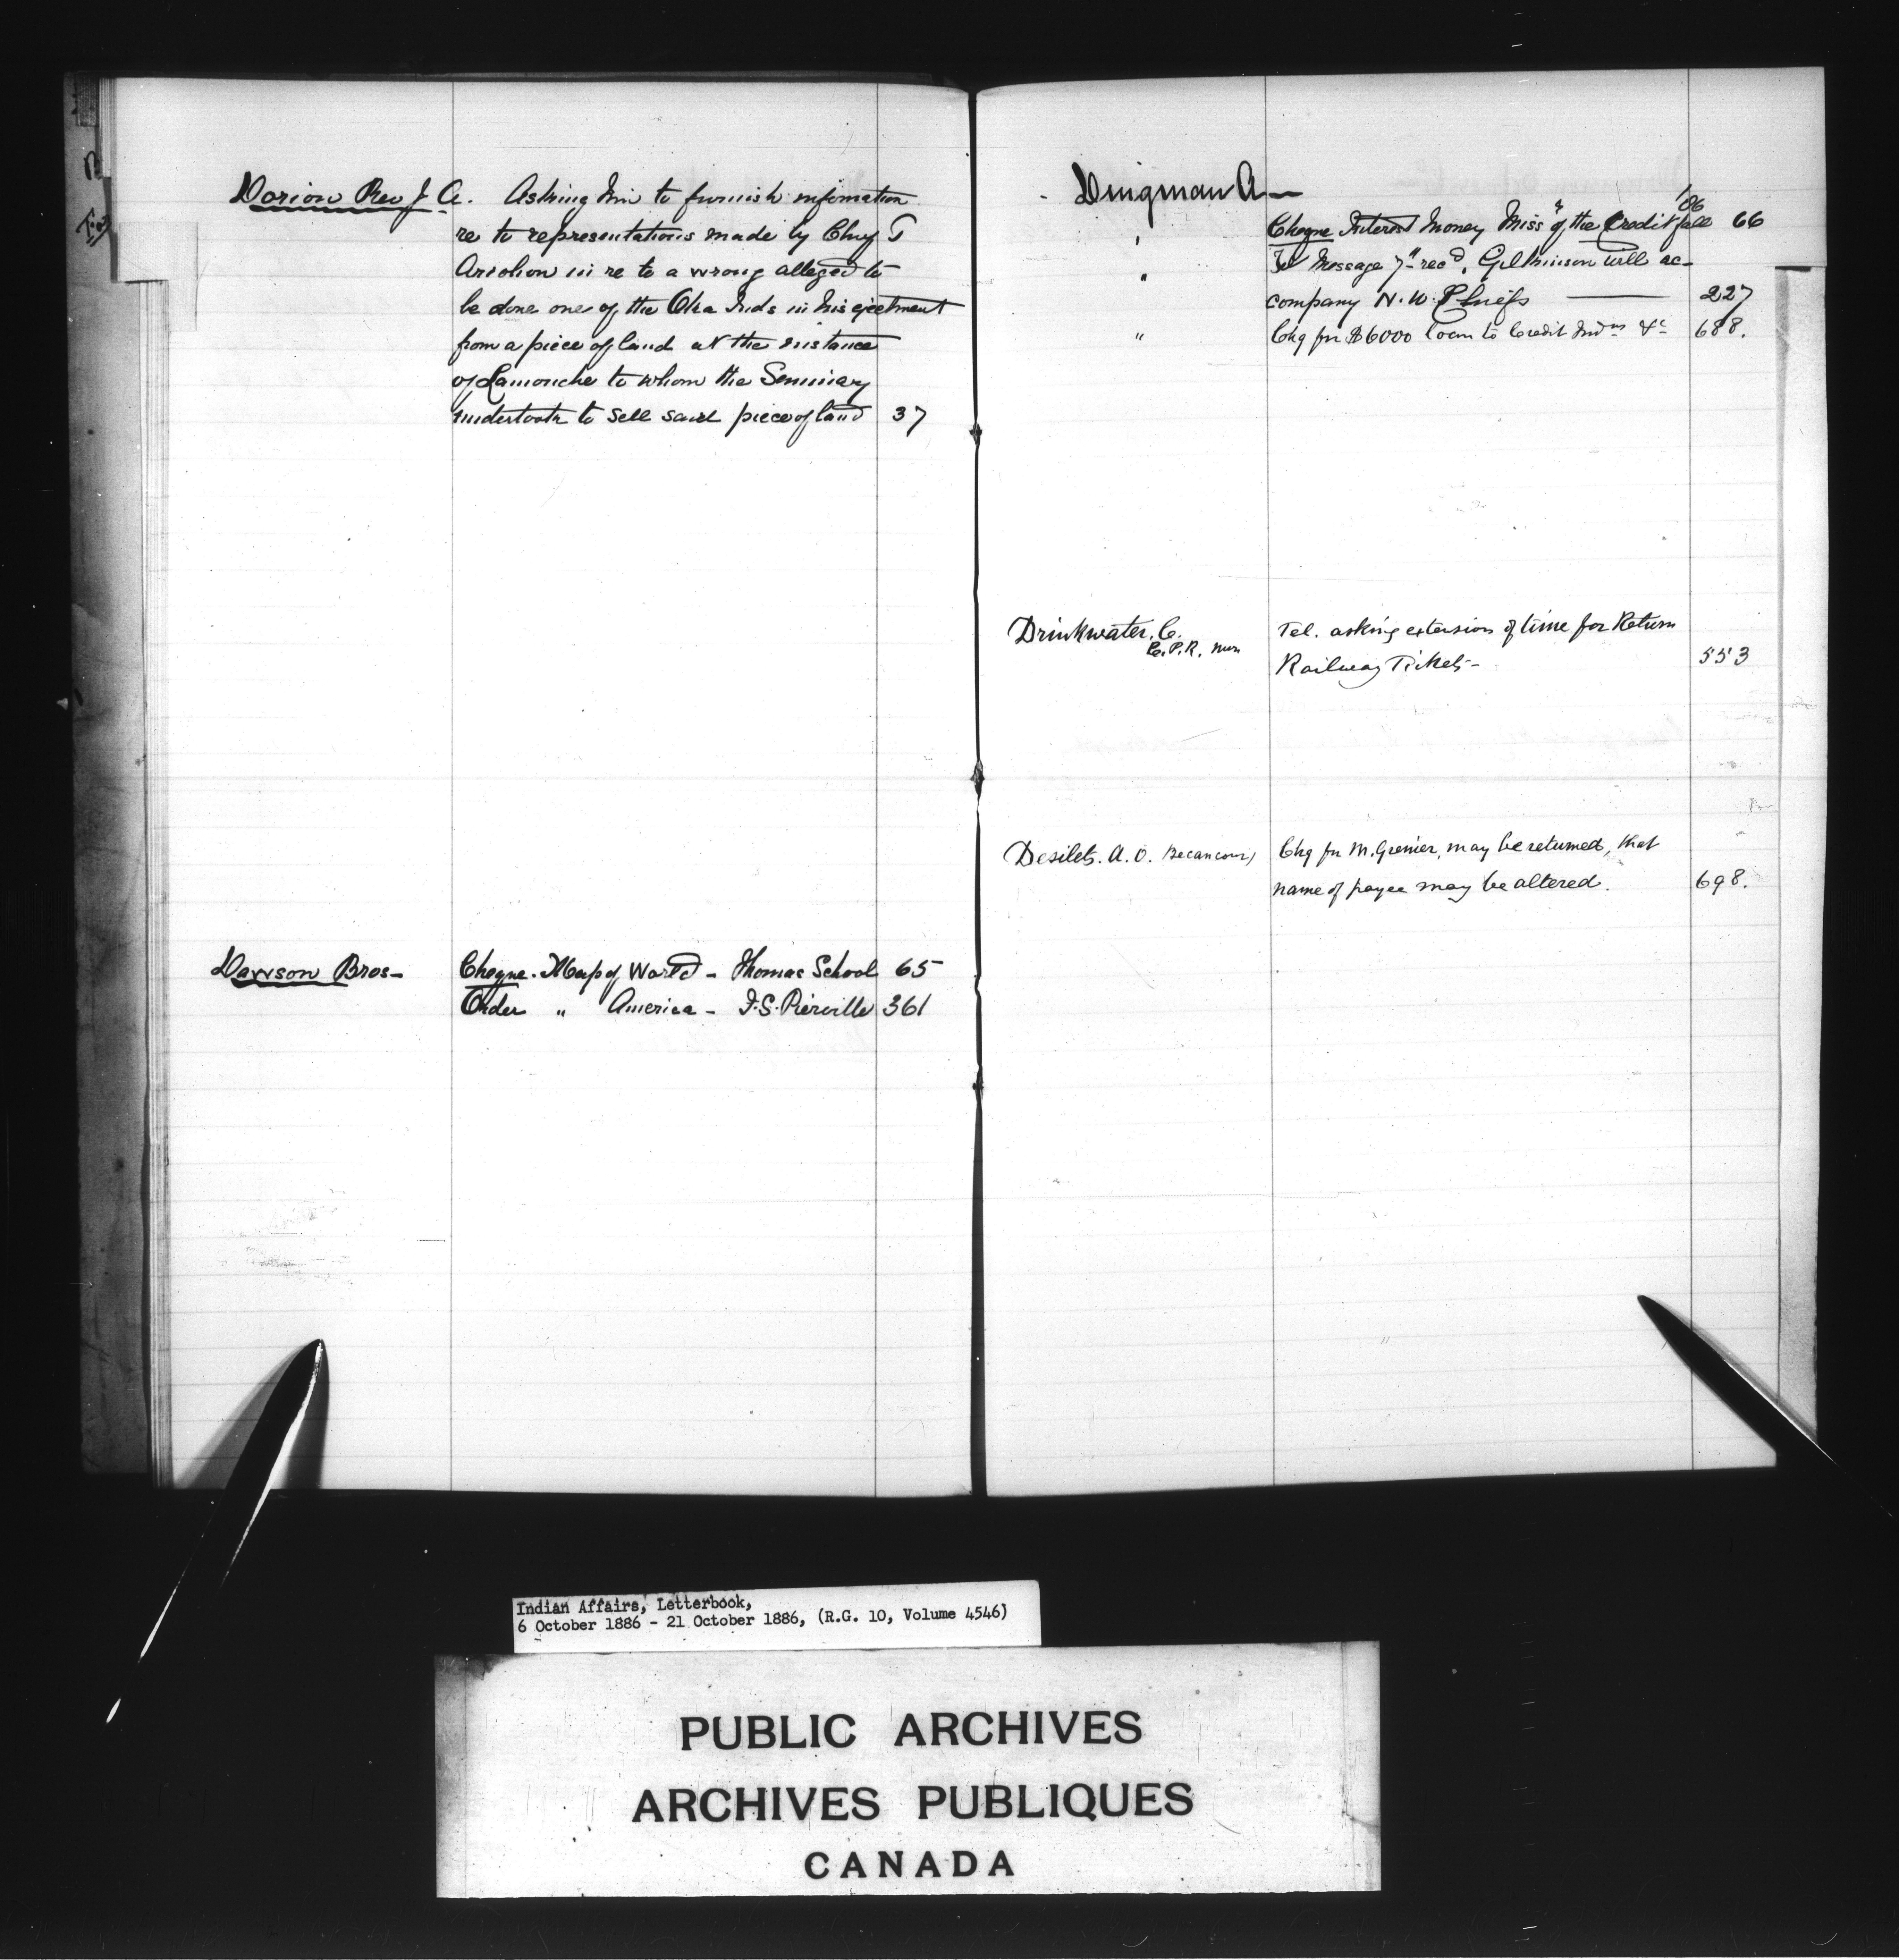 Dorion Rev J A. Asking him to furnish information
re to representations made by Chief T
in re to a wrong alleged to
be done one of the Oka Inds in his ejectment
from a piece of land at the instance
of Lamouche to whom the Seminary
undertook to sell said piece of land 37
Dawson Bros- Cheque. Map of World - Thomas School 65
Order " America - F.S. Pierville 361
Dingman A-
" Cheque Interest Money Miss.s of the Credit fall '86 66
" Tel Message 7th recd, Gilkinson will ac-
company N.W. Chiefs — 227
" Chq for $6000 loan to Credit Indns &c 688.
Drinkwater, C. Tel. asking extension of time for Return
C.P.R. Mon
Railway Tickets- 553
Desilets. A. O. Becancour, Chq for M. Grenier, may be returned, that
name of payee may be altered. 698.
Indian Affairs, Letterbook,
6 October 1886 - 21 October 1886, (R.G. 10, Volume 4546)
PUBLIC ARCHIVES
ARCHIVES PUBLIQUES
CANADA